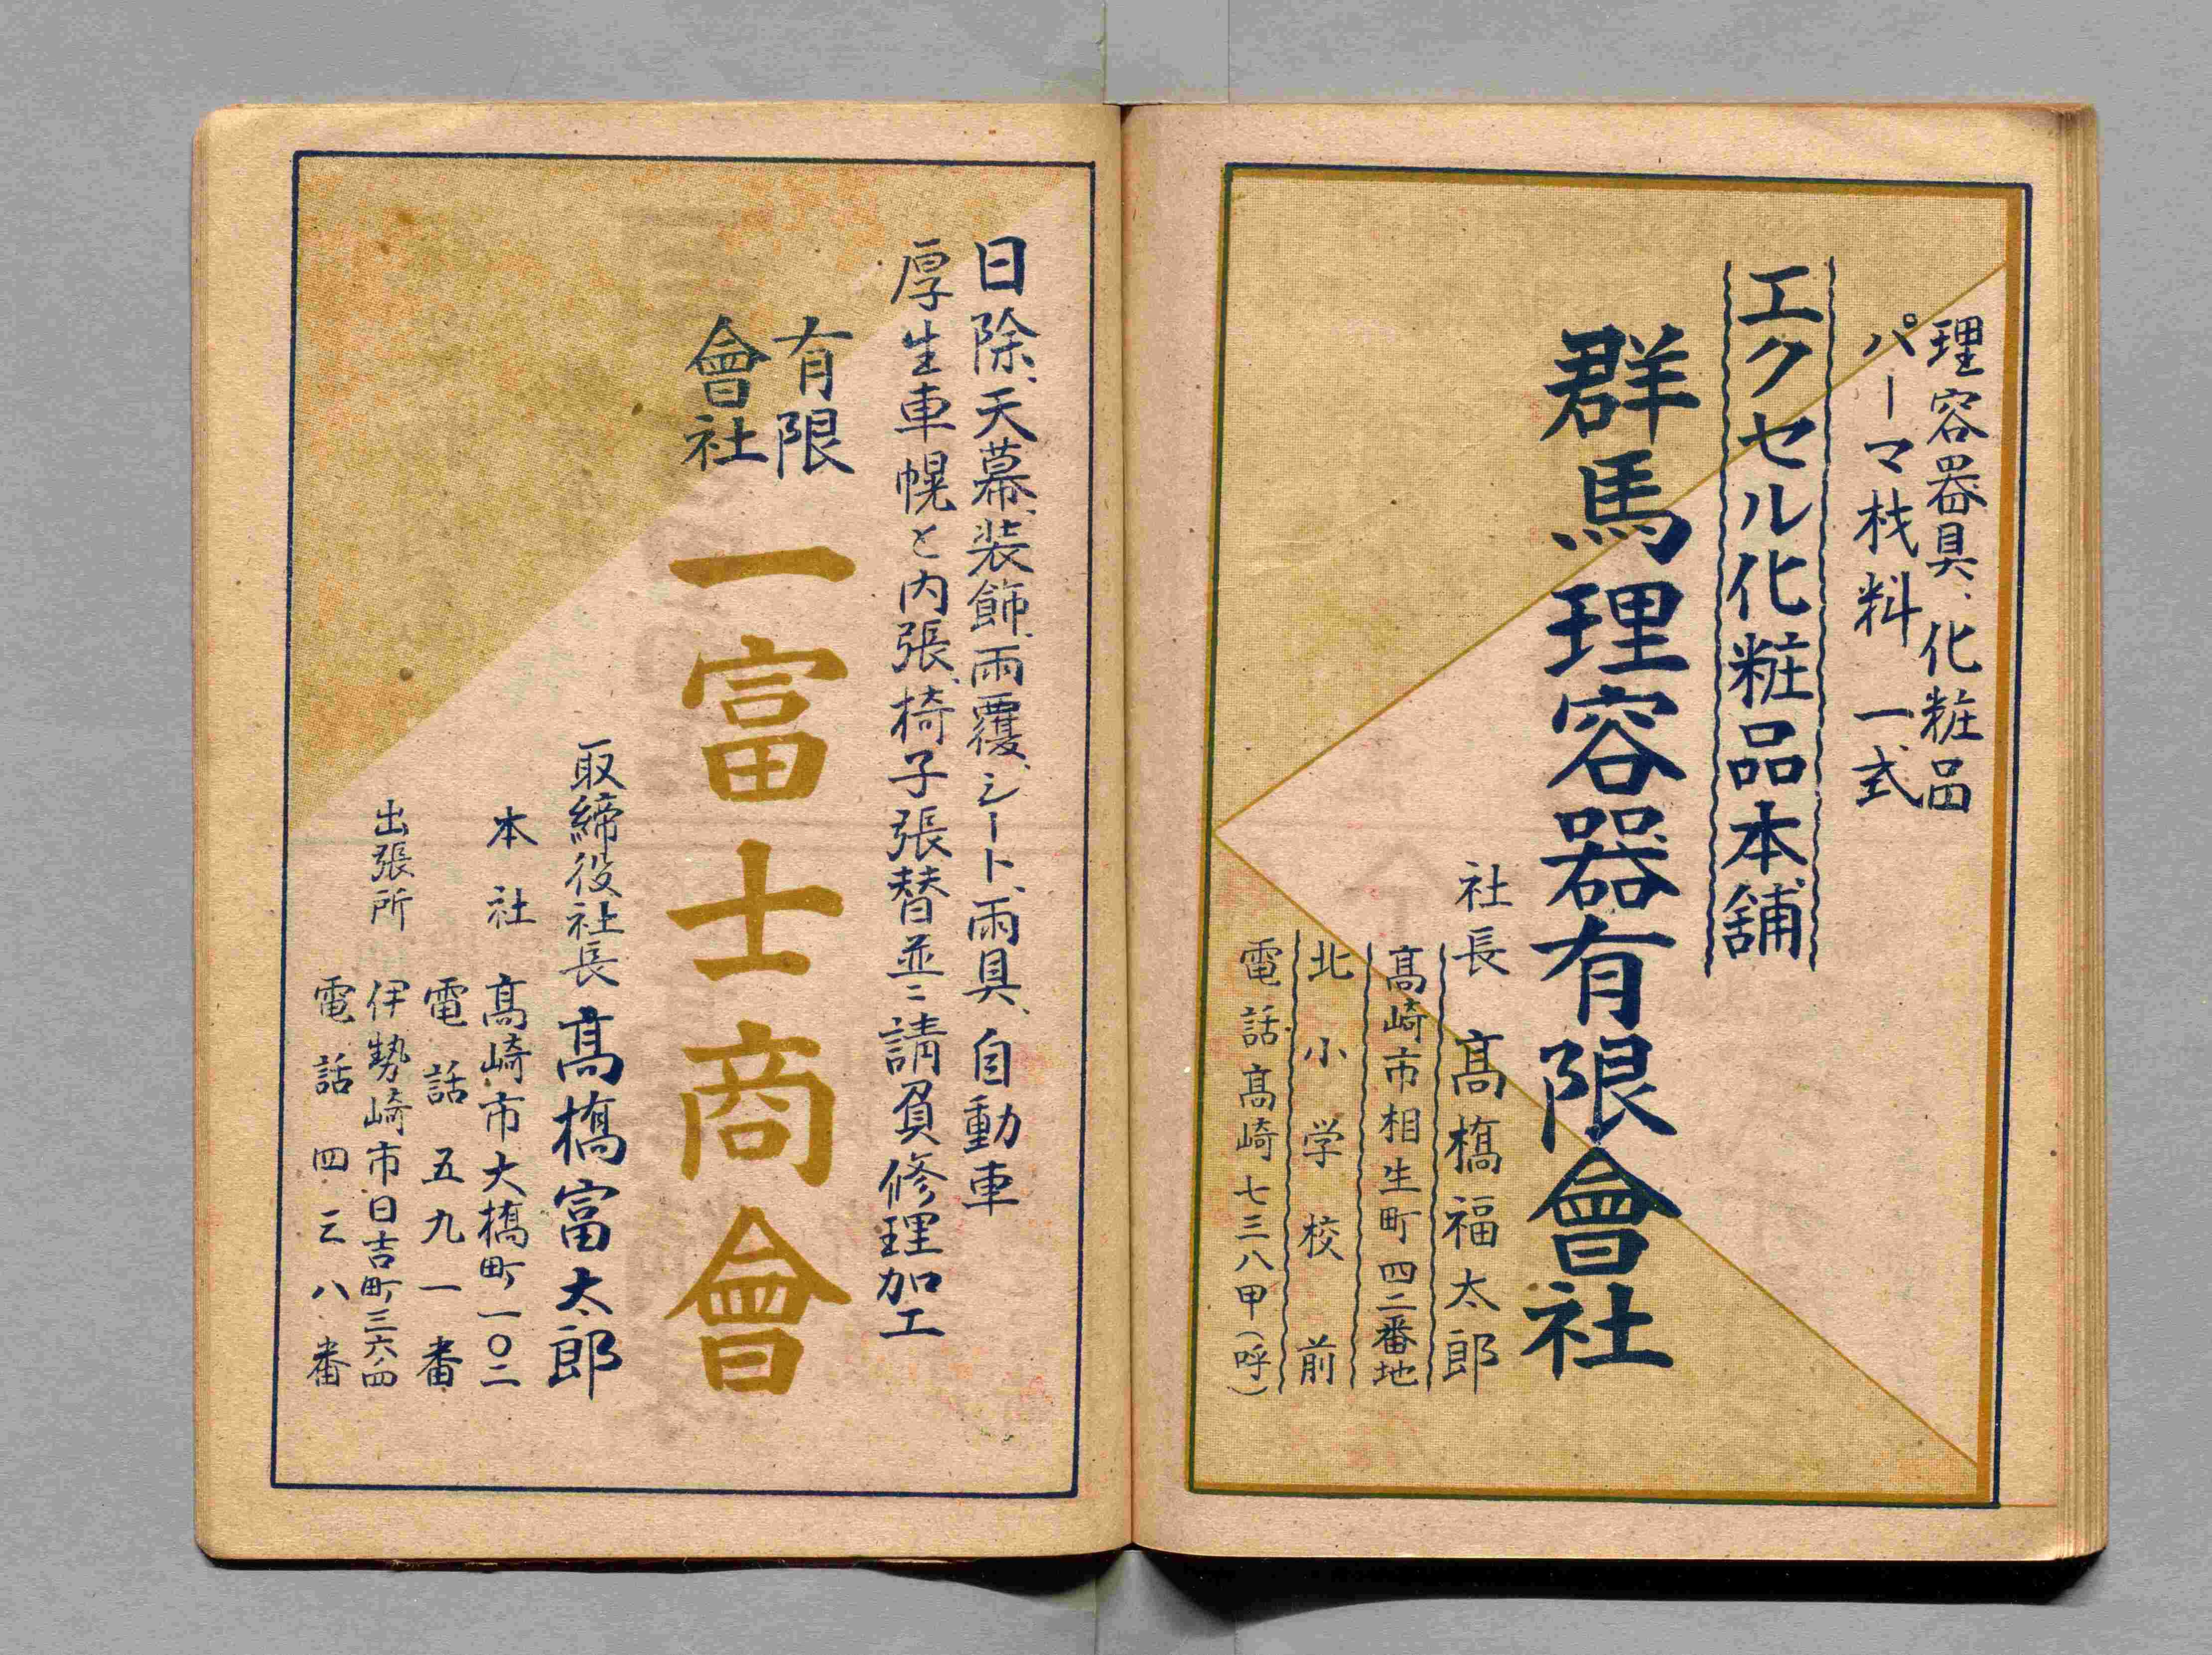 理容器具、化粧品
パーマ材料 一式
エクセル化粧品本舗
群馬理容器有限會社
社長 髙橋福太郎
髙崎市相生町四二番地
北小学校前
電話髙崎七三八甲(呼)
日除、天幕、装飾、雨覆、シート、雨具、自動車
厚生車幌と内張、椅子張替並ニ請負修理加工
有限
會社
一富士商會
取締役社長 髙橋富太郎
本社 髙崎市大橋町一〇二
電話 五九一番
出張所 伊勢崎市日吉町三六四
電話 四三八番